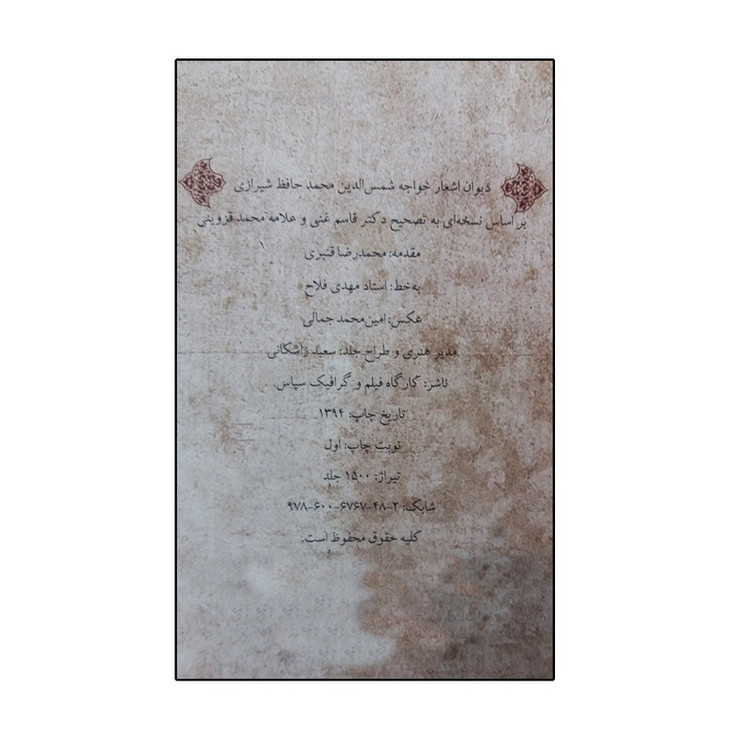 دیوان اشعار خواجه شمس‌الدین محمد حافظ شیرازی
بر اساس نسخه‌ای به تصحیح دکتر قاسم غنی و علامه محمد قزوینی
مقدمه: محمدرضا قنبری
به‌خط: استاد مهدی فلاح
عکس: امین‌محمد جمالی
مدیر هنری و طراح جلد: سعید زاشکانی
ناشر: کارگاه فیلم و گرافیک سپاس
تاریخ چاپ: ۱۳۹۴
نوبت چاپ: اول
تیراژ: ۱۵۰۰ جلد
شابک: ۲-۴۸-۶۷۶۷-۶۰۰-۹۷۸
کلیه حقوق محفوظ است.